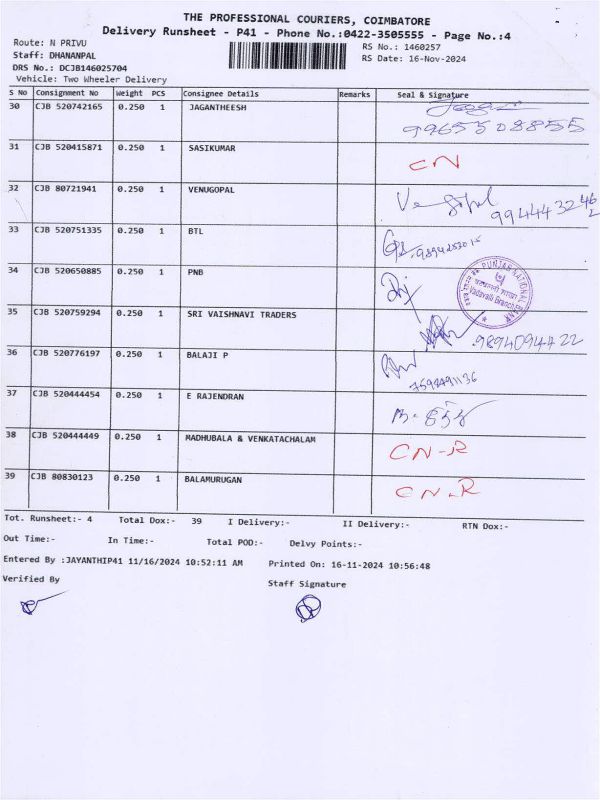 THE PROFESSIONAL COURIERS, COIMBATORE
Delivery Runsheet - P41 - Phone No.:0422-3505555 - Page No.:4
Route: N PRIVU RS No.: 1460257
Staff: DHANANPAL RS Date: 16-Nov-2024
DRS No.: DCJB146025704
Vehicle: Two Wheeler Delivery
S No Consignment No Weight PCS Consignee Details Remarks Seal & Signature
30 CJB 520742165 0.250 1 JAGANTHEESH
9965508855
31 CJB 520415871 0.250 1 SASIKUMAR CN
32 CJB 80721941 0.250 1 VENUGOPAL Venugopal
33 CJB 520751335 0.250 1 BTL
34 CJB 520650885 0.250 1 PNB
PUNJAB NATIONAL BANK
Vadavalli Branch
35 CJB 520759294 0.250 1 SRI VAISHNAVI TRADERS
9894094422
36 CJB 520776197 0.250 1 BALAJI P
37 CJB 520444454 0.250 1 E RAJENDRAN
38 CJB 520444449 0.250 1 MADHUBALA & VENKATACHALAM CN-R
39 CJB 80830123 0.250 1 BALAMURUGAN CN-R
Tot. Runsheet:- 4 Total Dox:- 39 I Delivery:- II Delivery:- RTN Dox:-
Out Time:- In Time:- Total POD:- Delvy Points:-
Entered By :JAYANTHIP41 11/16/2024 10:52:11 AM Printed On: 16-11-2024 10:56:48
Verified By Staff Signature